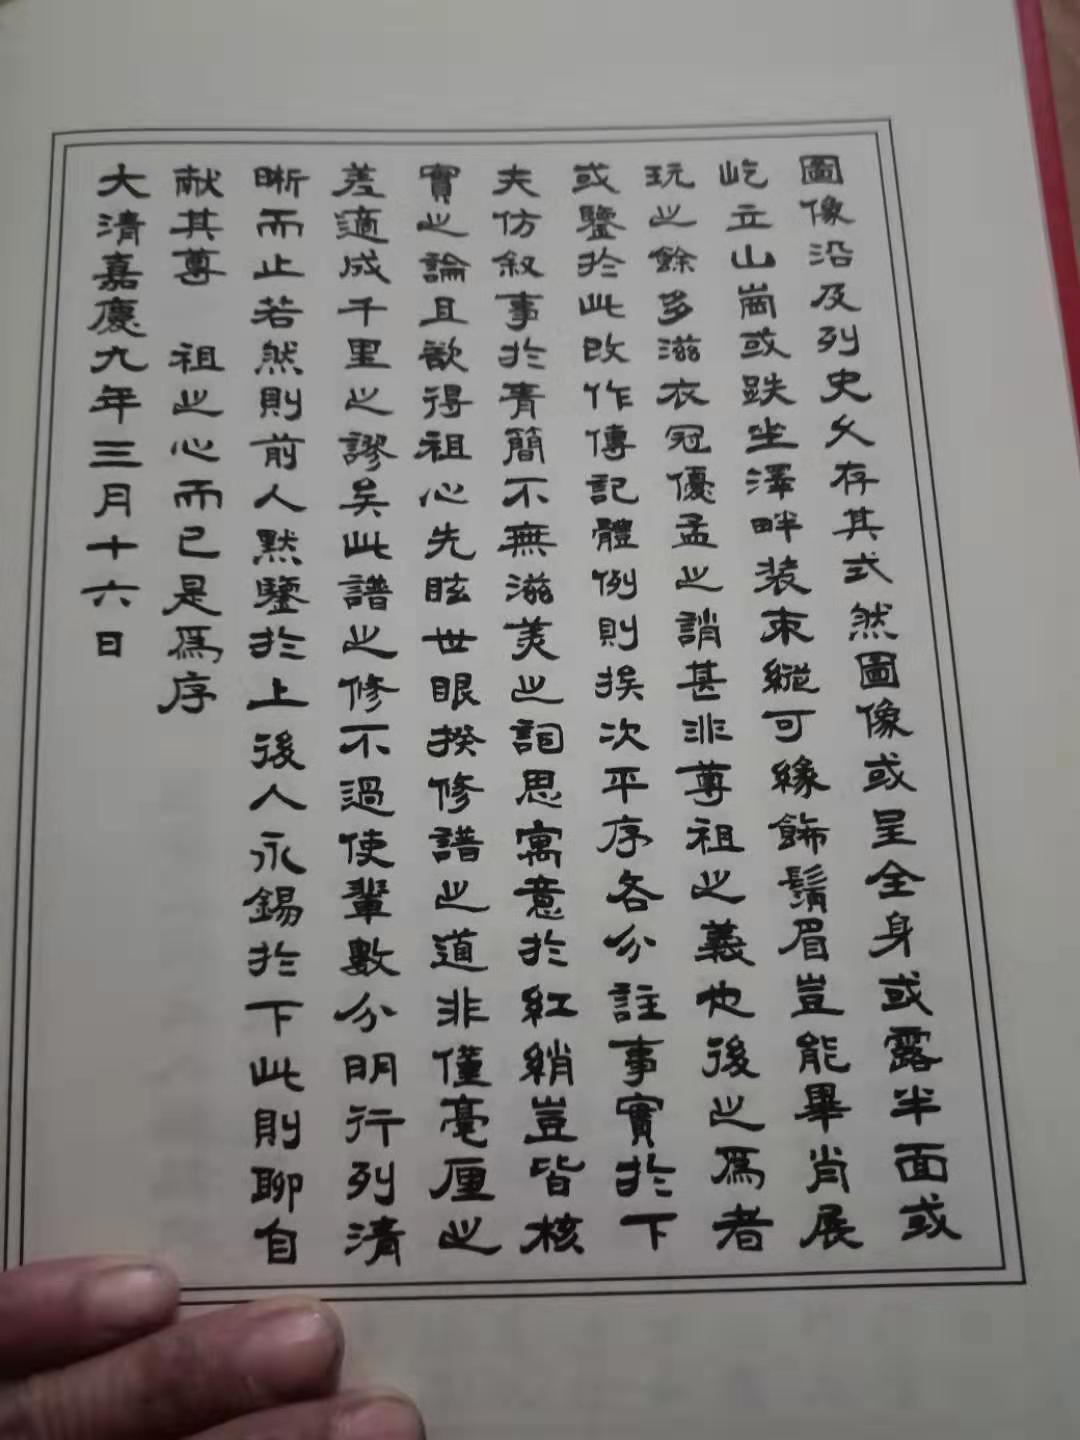 圖像沿及列史久存其式然圖像或呈全身或露半面或
屹立山崗或跌坐澤畔装束縱可緣飾鬚眉豈能畢肖展
玩之餘多滋衣冠優孟之誚甚非尊祖之義也後之爲者
或鑒於此改作傳記體例則挨次平序各分註事實於下
夫仿叙事於青簡不無滋美之詞思寓意於紅綃豈皆核
實之論且歆得祖心先眩世眼揆修譜之道非僅毫厘之
差適成千里之謬矣此譜之修不過使輩數分明行列清
晰而止若然則前人默鑒於上後人永錫於下此則聊自
献其尊 祖之心而已是爲序
大清嘉慶九年三月十六日